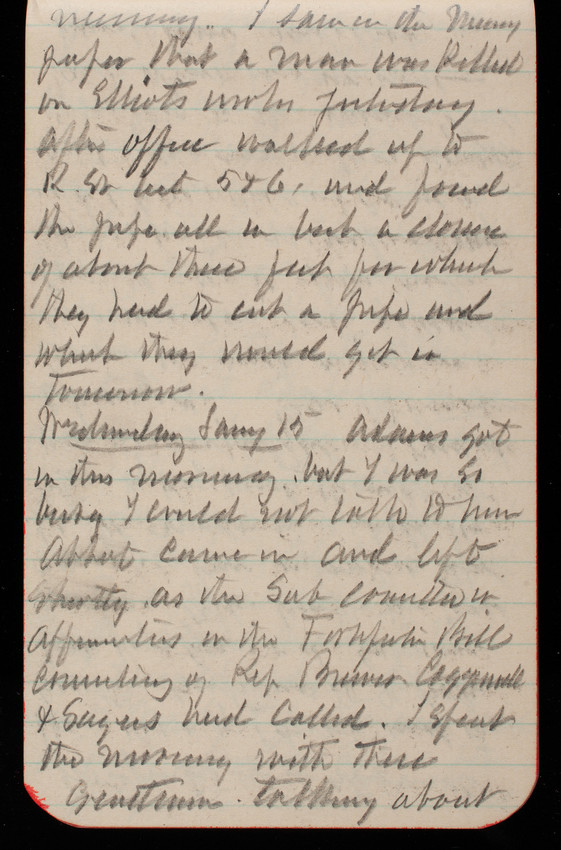 morning. I saw in the morning
paper that a man was killed
on Elliots work yesterday.
After office walked up to
R. St bet 5 & 6, and found
the pipe all in but a closure
of about three feet for which
they had to cut a pipe and
which they would get in
tomorrow.
Wednesday Jany 15 Adams got
in this morning, but I was so
busy I could not talk to him
Abbot came in and left
shortly. as the Sub Committee on
Appropriations in the Fortification Bill
consisting of Rep Brewer Coggswell
& Sayers had called. I spent
the morning with these
gentlemen. talking about